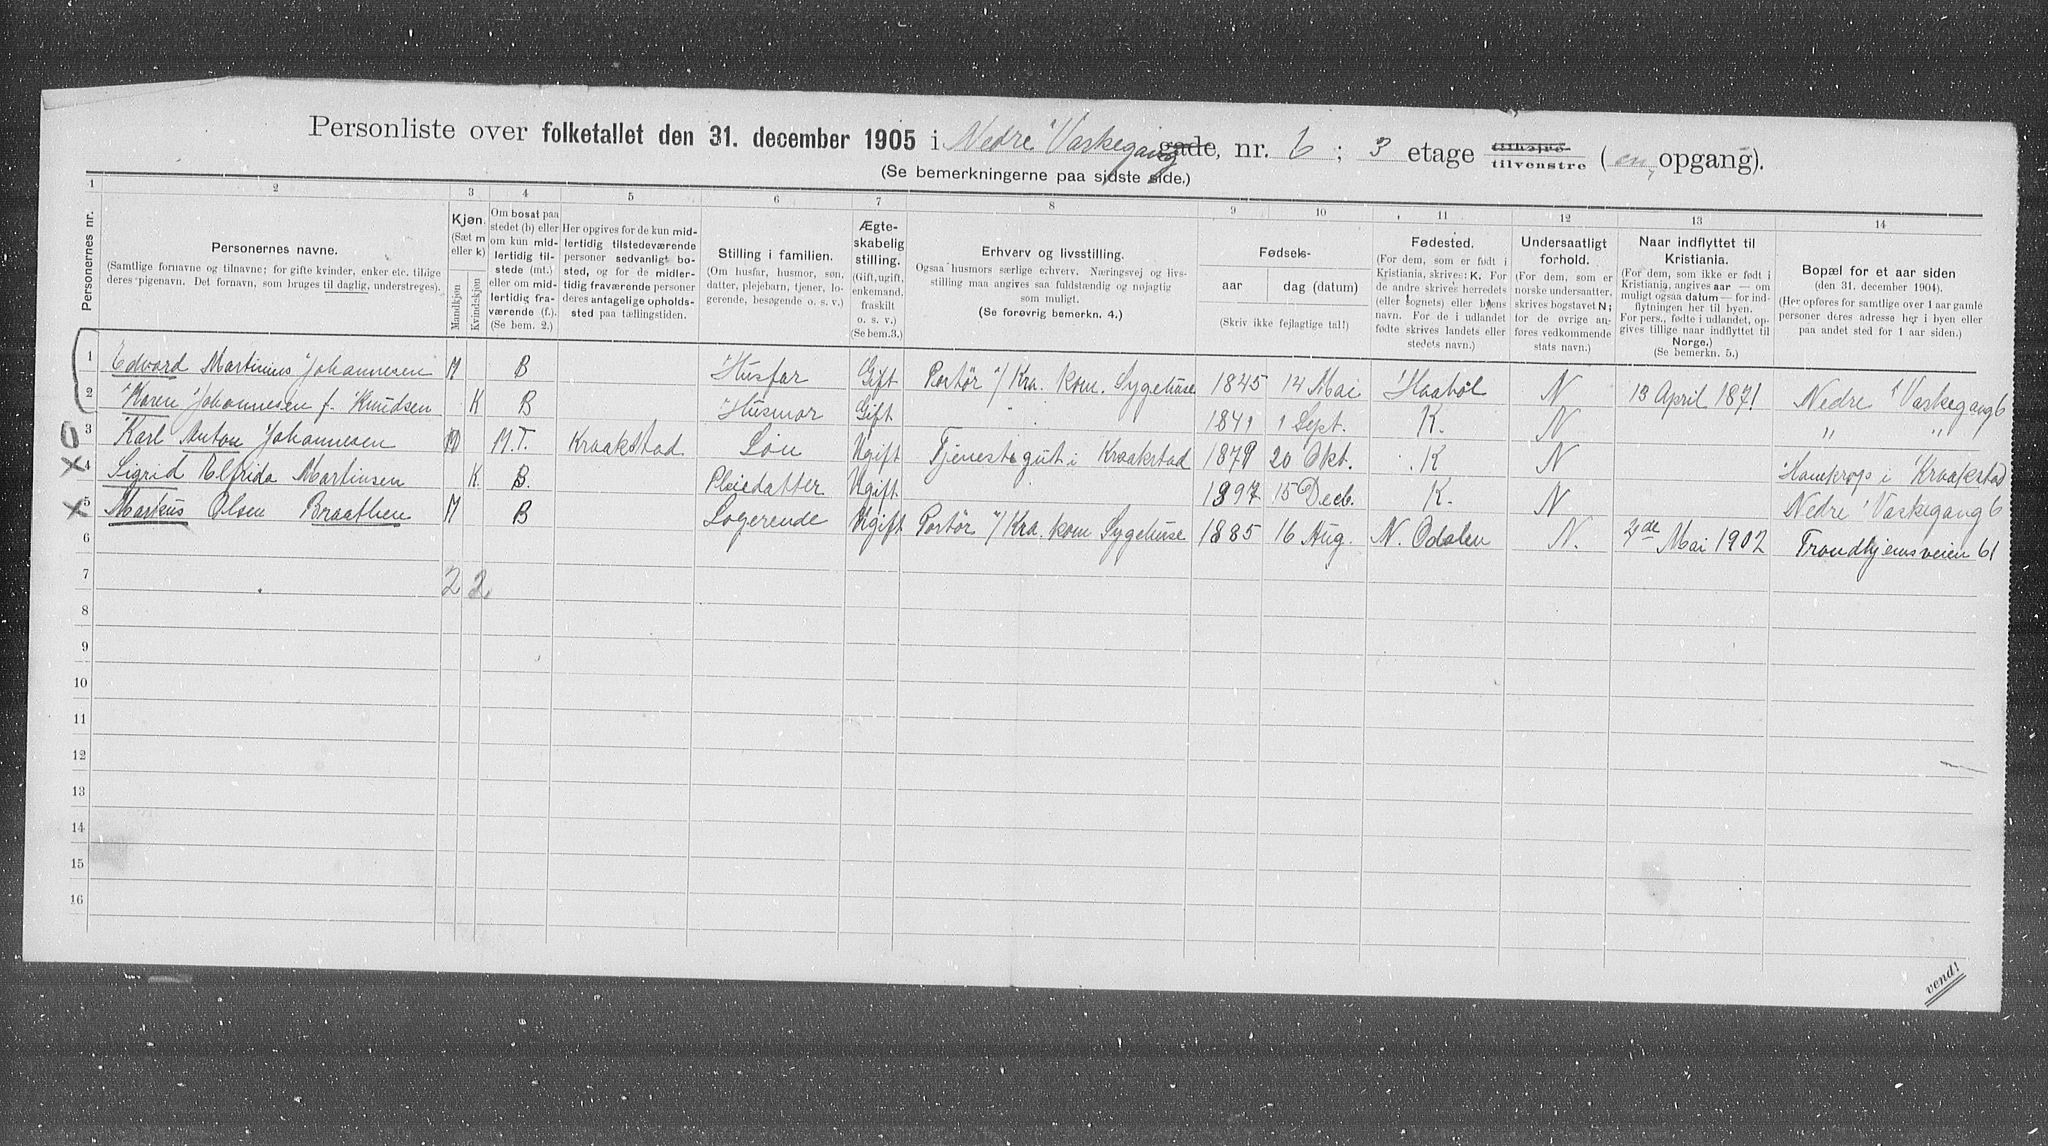 Personliste over folketallet den 31. december 1905 i Nedre Vaskegang gade, nr. 6 ; 3 etage tilhøire tilvenstre (en opgang).
(Se bemerkningerne paa sidste side.)
1 2 3 4 5 6 7 8 9 10 11 12 13 14
Personernes nr.
Personernes navne.
(Samtlige fornavne og tilnavne; for gifte kvinder, enker etc. tillige deres pigenavn. Det fornavn, som bruges til daglig, understreges).
Kjøn.
(Sæt m eller k)
Mandkjøn
Kvindekjøn
Om bosat paa stedet (b) eller om kun midlertidig tilstede (mt.) eller om midlertidig fraværende (f.).
(Se bem. 2.)
Her opgives for de kun midlertidig tilstedeværende personer sedvanlig bosted, og for de midlertidig fraværende personer deres antagelige opholdssted paa tællingstiden.
Stilling i familien.
(Om husfar, husmor, søn, datter, plejebarn, tjener, logerende, besøgende o. s. v.)
Ægteskabelig stilling.
(Gift, ugift, enkemand, fraskilt o. s. v.)
(Se bem. 3.)
Erhverv og livsstilling.
Ogsaa husmors særlige erhverv. Næringsvej og livsstilling maa angives saa fuldstændig og nøjagtig som muligt.
(Se forøvrig bemerkn. 4.)
Fødsels-
aar dag (datum)
(Skriv ikke fejlagtige tal!)
Fødested.
(For dem, som er født i Kristiania, skrives: K. For de andre skrives herredets (eller sognets) eller byens navn. For de i udlandet fødte skrives landets eller stedets navn.)
Undersaatligt forhold.
(For dem, som er norske undersaatter, skrives bogstavet N; for de øvrige anføres vedkommende stats navn.)
Naar indflyttet til Kristiania.
(For dem, som ikke er født i Kristiania, angives aar — om muligt ogsaa datum — for indflytningen her til byen.
For pers., fødte i udlandet, opgives tillige naar indflyttet til Norge.)
(Se bemerkn. 5.)
Bopæl for et aar siden
(den 31. december 1904).
(Her opføres for samtlige over 1 aar gamle personer deres adresse her i byen eller paa andet sted for 1 aar siden.)
1 Edvard Martinius Johannesen M B Husfar Gift Portør v/ Kra. kom. Sygehuse 1845 14 Mai Haabøl N 13 April 1871 Nedre Vaskegang 6
2 Karen Johannesen f. Knudsen K B Husmor Gift " 1841 1 Sept. K. N " "
3 Karl Anton Johannesen M M.T. Kraakstad Søn Ugift Tjenestegut i Kraakstad 1879 20 Okt. K N Kraakstad
4 Sigrid Alfrida Martinsen K B. Pleiedatter Ugift 1897 15 Decb. K. N Nedre Vaskegang 6
5 Markus Olsen Braathen M B Logerende Ugift Portør v/ Kra. kom Sygehuse 1885 16 Aug. N. Odalen N. Mai 1902 Trondhjemsveien 61
6
7 2 2
8
9
10
11
12
13
14
15
16
vend!